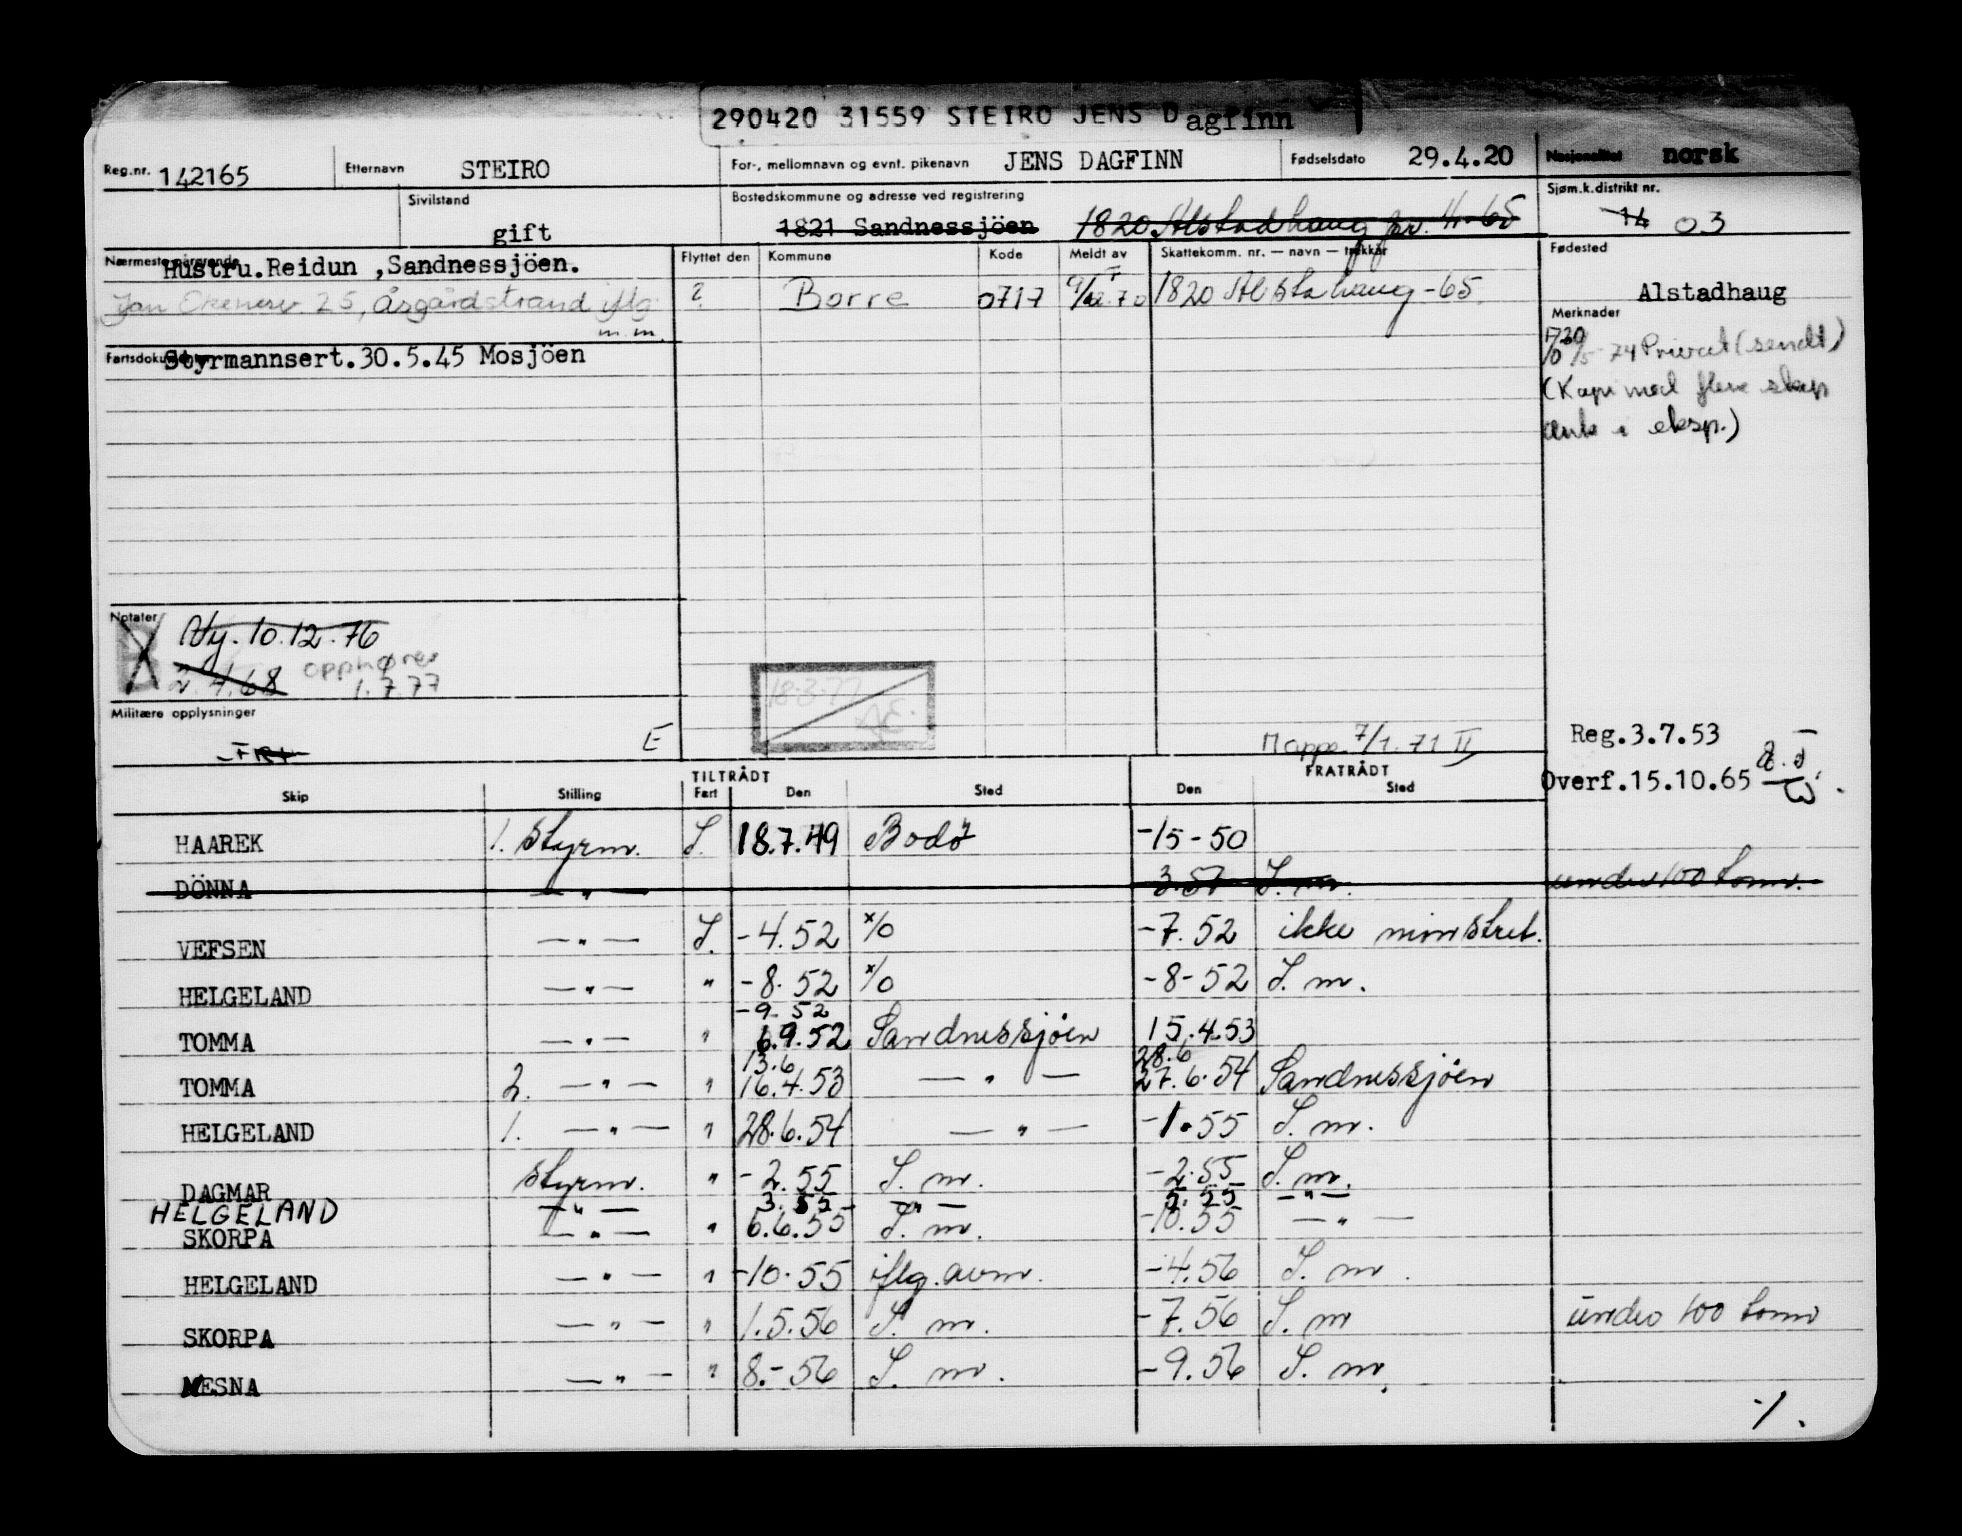 290420 31559 STEIRO JENS Dagfinn
Reg.nr. 142165 Etternavn STEIRO For-, mellomnavn og evnt. pikenavn JENS DAGFINN Fødselsdato 29.4.20 Nasjonalitet norsk
Sivilstand gift Bostedskommune og adresse ved registrering 1821 Sandnessjöen 1820 Alstadhaug pr. 4-65 Sjøm.k.distrikt nr. 14 03
Nærmeste pårørende Hustru.Reidun ,Sandnessjöen. Flyttet den Kommune Kode Meldt av Skattekomm. nr. — navn — trekkår Fødested
25, Åsgårdstrand iflg. ? Borre 0717 1820 Alstahaug -65 Alstadhaug
m.m.
Merknader
74 Privat (sendt)
(Kopi med flere skip
i eksp.)
Fartsdokumenter Styrmannsert.30.5.45 Mosjöen
Notater
Ny. 10.12.76
2.4.68 opphører
1.7.77
18.3.77
Militære opplysninger
E
Mappe 7/1.71 II
Reg.3.7.53
Overf.15.10.65
TILTRÅDT FRATRÅDT
Skip Stilling Fart Den Sted Den Sted
HAAREK 1. Styrm. I. 18.7.49 Bodø -15-50
DÖNNA — " — 3.51 I. m. under 100 tonn.
VEFSEN — " — I. -4.52 x/o -7.52 ikke mønstret.
HELGELAND — " — " -8.52 x/o -8-52 I. m.
-9.52
TOMMA — " — " 6.9.52 Sandnessjöen 15.4.53
13.6 28.6
TOMMA 2. — " — " 16.4.53 — " — 27.6.54 Sandnessjöen
HELGELAND 1. — " — " 28.6.54 — " — -1.55 I. m.
DAGMAR Styrm. " -2.55 I. m. -2.55 I. m.
HELGELAND — " — 3.55 — " — 5.55 — " —
SKORPA — " — " 6.6.55 I. m. -10.55 — " —
HELGELAND — " — " -10.55 iflg. avm. -4.56 I. m.
SKORPA — " — " 1.5.56 I. m. -7.56 I. m under 100 tonn
MESNA — " — " 8.-56 I. m. -9.56 I. m.
·/.